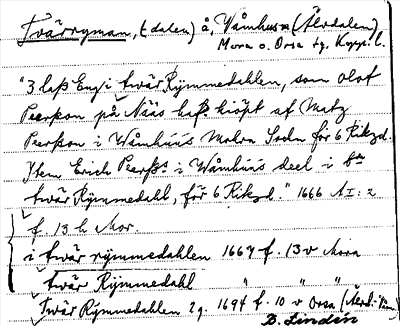 Tvärryman, (dalen) å, Våmhus (Älvdalen)
Mora o. Orsa tg. Kopp. l.
"3 lass Eng i twär Rÿmmedahlen, som olof
Peerson på Näs hafr kiöpt af Matz
Peerson i Wåmhuus Mohra Sochn för 6 Rikzd.
Item Erich Peerss. i Wåmhuus deel i be
twär Rÿmmedahl, för 6 Rikzd." 1666 AI:2
f. 13 h Mor.
i twär rÿmmedahlen 1667 f. 13 v Mora
twär Rÿmmedahl " " "
Twär Rÿmmedahlen 2 g. 1694 f. 10 v Orsa
B. Lindén